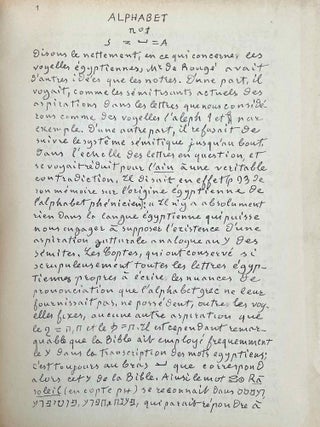 1
ALPHABET
nº1
= A
Disons le nettement, en ce qui concerne les
voyelles égyptiennes, Mr de Rougé avait
d'autres idées que les notres. D'une part, il
voyait, comme les sémitisants actuels des
aspirations dans les lettres que nous considé
rons comme des voyelles l'aleph et par
exemple. D'une autre part, il refusait de
suivre le système sémitique jusqu'au bout
dans l'échelle des lettres en question et
se voyait réduit pour l'ain à une véritable
contradiction. Il disait en effet p 93 de
son mémoire sur l'origine égyptienne de
l'alphabet phénicien: « Il n'y a absolument
rien dans la langue égyptienne qui puisse
nous engager à supposer l'existence d'une
aspiration gutturale analogue au ע des
sémites. Les Coptes, qui ont conservé si
scrupuleusement toutes les lettres égyp-
tiennes propres à écrire les nuances de
prononciation que l'alphabet grec ne leur
fournissait pas, ne possédent, outre les voy-
elles fixes, aucune autre aspiration que
le ϩ = ה, ח et le = ח. Il est cependant remar-
quable que la Bible ait employé fréquemment
le ע dans la transcription des mots égyptiens;
c'est toujours au bras que correspond
alors cet ע de la Bible. Ainsi le mot Râ
soleil (en copte ⲣⲏ) se reconnait dans
פוטיפרע, qui parait répondre à